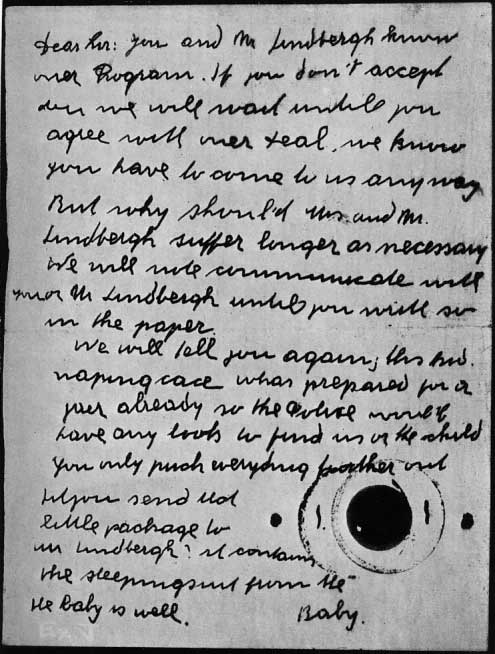 Dear Sir: you and Mr Lindbergh know
ouer Program. If you don't accept
den we will wait untill you
agree with ouer deal. we know
you have to come to us anyway
But why should Mrs. and Mr.
Lindbergh suffer longer as necessary
We will note communicate with
you or Mr Lindbergh until you write so
in the paper.
We will tell you again; this kid.
naping cace whas prepared for a
yaer already so the Police would
have any look to find us or the child
You only puch everyding further out
did you send that
little package to
Mr Lindbergh? it contains
the sleepingsuit from the
Baby.
the baby is well.